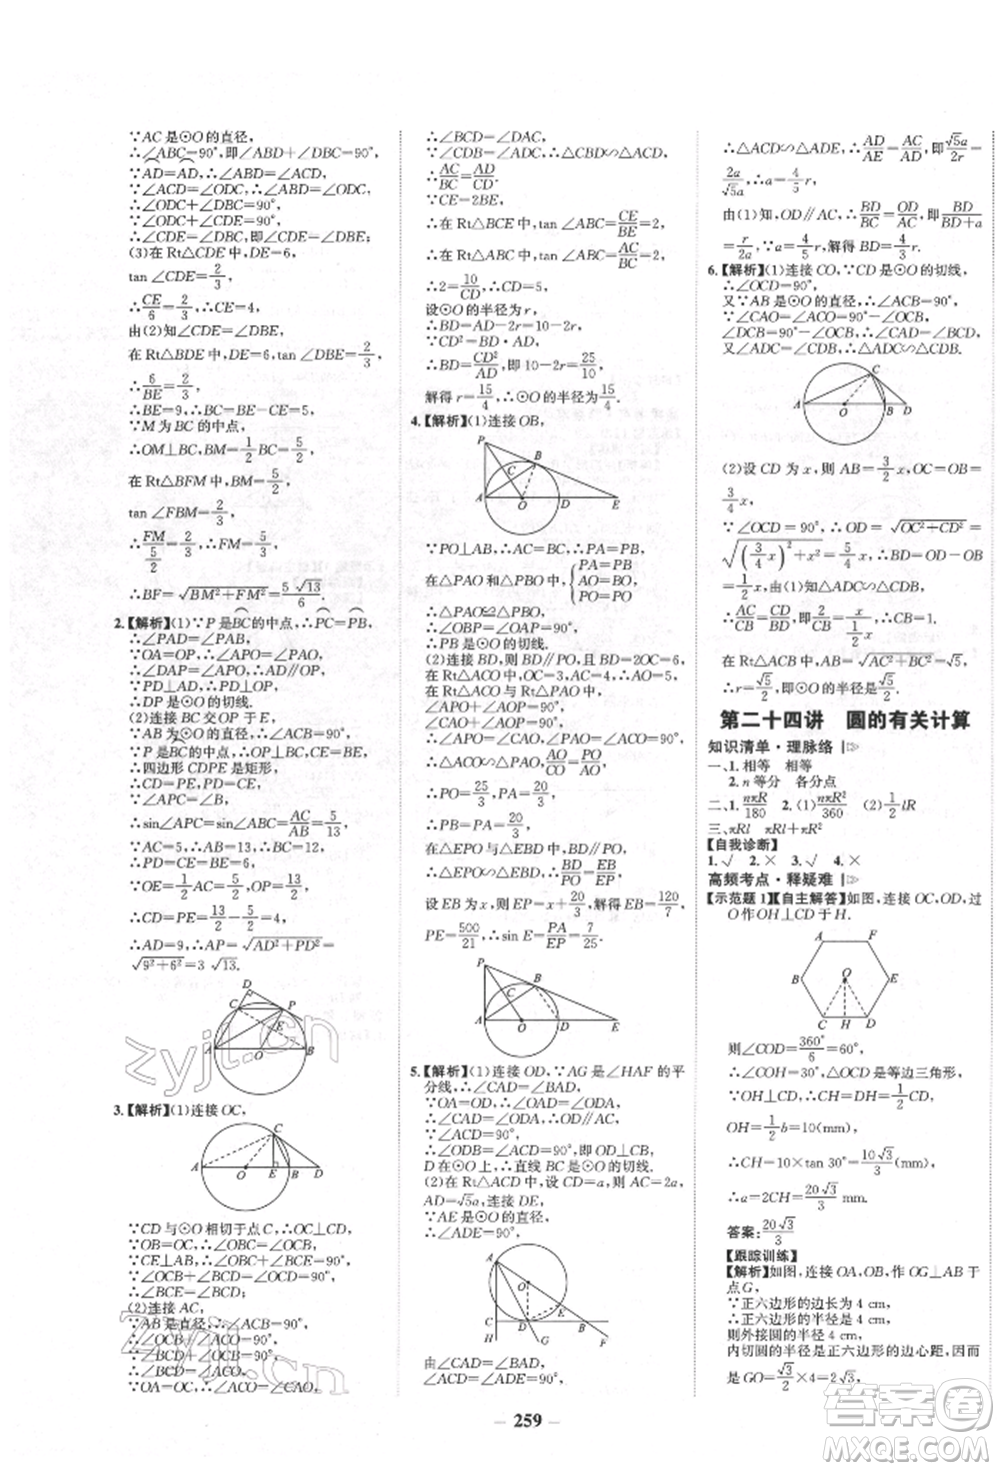 ∵AC是⊙O的直径,
∴∠ABC=90°,即∠ABD+∠CBD=90°,
∵AD=AD,∴∠ABD=∠ACD,
∵∠ACD=∠ODC,∴∠ABD=∠ODC,
∴∠ODC+∠CBD=90°,
∵∠ODC+∠CDE=90°,
∴∠CBD=∠CDE.
(3)在Rt△CDE中,DE=6,
tan∠CDE=2/3,
∴CE/6=2/3,∴CE=4,
由(2)知∠CDE=∠DBE,
在Rt△BDE中,DE=6,tan∠DBE=2/3,
∴6/BE=2/3,
∴BE=9,∴BC=BE-CE=5,
∵M为BC的中点,
∴OM⊥BC,BM=1/2BC=5/2,
在Rt△BFM中,BM=5/2,
tan∠FBM=2/3,
∴FM/(5/2)=2/3,∴FM=5/3,
∴BF=√(BM²+FM²)=5√13/6.
2.【解析】(1)∵P是BC的中点,∴PC=PB,
∴∠PAD=∠PAB,
∵OA=OP,∴∠APO=∠PAO,
∴∠DAP=∠APO,∴AD∥OP,
∵PD⊥AD,∴PD⊥OP,
∴DP是⊙O的切线.
(2)连接BC交OP于E,
∵AB为⊙O的直径,
∵P为BC的中点,∴OP⊥BC,CE=BE,
∴四边形CDPE是矩形,
∴CD=PE,PD=CE,
∵∠APC=∠B,
∴sin∠APC=sin∠ABC=AC/AB=5/13,
∵AC=5,∴AB=13,∴BC=12,
∴PD=CE=BE=6,
∵OE=1/2AC=5/2,OP=13/2,
∴CD=PE=13/2-5/2=4,
∴AD=9,∴AP=√(AD²+PD²)=
√(9²+6²)=3√13.
D
C
P
E
A
O
B
3.【解析】(1)连接OC,
C
A
O
E
B
D
∵CD与⊙O相切于点C,∴OC⊥CD,
∵OB=OC,∴∠OBC=∠OCB,
∵CE⊥AB,∴∠OBC+∠BCE=90°,
∵∠OCB+∠BCD=∠OCD=90°,
∴∠BCE=∠BCD.
(2)连接AC,
∵AB是直径,∴∠ACB=90°,
∴∠OCB+∠ACO=90°,
∵∠BCD+∠OCB=90°,
∴∠BCD=∠ACO,
∵OA=OC,∴∠ACO=∠CAO,
∴∠BCD=∠DAC,
∵∠CDB=∠ADC,∴△CBD∽△ACD,
∴AC/BC=AD/CD.
∵CE=2BE,
∴在Rt△BCE中,tan∠ABC=CE/BE=2,
∴在Rt△ABC中,tan∠ABC=AC/BC=2,
∴2=10/CD,∴CD=5,
设⊙O的半径为r,
∴BD=AD-2r=10-2r,
∵CD²=BD·AD,
∴BD=CD²/AD,即10-2r=25/10,
解得r=15/4,∴⊙O的半径为15/4.
4.【解析】(1)连接OB,
P
C
B
A
O
D
E
∵PO⊥AB,∴AC=BC,∴PA=PB,
在△PAO和△PBO中,{PA=PB, PO=PO, OA=OB,
∴△PAO≌△PBO,
∴∠OBP=∠OAP=90°,
∴PB是⊙O的切线.
(2)连接BD,则BD∥PO,且BD=2OC=6,
在Rt△ACO中,OC=3,AC=4,∴AO=5,
在Rt△ACO与Rt△PAO中,
∠APO=∠APO,
∠PAO=∠ACO=90°,
∴△ACO∽△PAO,AO/CO=PO/AO,
∴PO=25/3,∴PA=20/3,
∴PB=PA=20/3,
在△EPO与△EBD中,BD∥PO,
∴△EPO∽△EBD,∴BD/PO=EB/EP,
设EB=x,则EP=x+20/3,解得EB=120/7,
PE=500/21,∴sin E=PA/EP=7/25.
P
C
B
A
O
D
E
5.【解析】(1)连接OD,∵AG是∠HAF的平分线,∴∠CAD=∠BAD,
∵OA=OD,∴∠OAD=∠ODA,
∴∠CAD=∠ODA,∴OD∥AC,
∵∠ACD=90°,
∴∠ODB=∠ACD=90°,即OD⊥CB,
D在⊙O上,∴直线BC是⊙O的切线.
(2)在Rt△ACD中,设CD=a,则AC=2a,
AD=√5a,连接DE,
∵AE是⊙O的直径,
∴∠ADE=90°,
A
O
E
C
D
B
H
G
F
由∠CAD=∠BAD,
∠ACD=∠ADE=90°,
∴△ACD∽△ADE,∴AD/AE=AC/AD,即√5a/2r=
2a/√5a,∴a=4/5r,
由(1)知,OD∥AC,∴BD/BC=OD/AC,即BD/(BD+a)
=r/2a,∵a=4/5r,解得BD=4/3r.
6.【解析】(1)连接CO,∵CD是⊙O的切线,
∴∠OCD=90°,
又∵AB是⊙O的直径,∴∠ACB=90°,
∵∠CAO=∠ACO,∠CAO+∠OBC=90°,
∠DCB+∠OCB=90°,∴∠CAD=∠BCD,
又∵∠ADC=∠CDB,∴△ADC∽△CDB.
C
A
O
B
D
(2)设CD为x,则AB=3/2x,OC=OB=
3/4x,
∵∠OCD=90°,∴OD=√(OC²+CD²)=
√((3/4x)²+x²)=5/4x,
∴BD=OD-OB=5/4x-3/4x=1/2x,
由(1)知,△ADC∽△CDB,
∴AC/CB=CD/BD,即2/CB=x/(1/2x),解得CB=1,
在Rt△ACB中,AB=√(AC²+BC²)=√5,
∴r=√5/2,∴⊙O半径是√5/2.
第二十四讲 圆的有关计算
知识清单·理脉络
一、1.相等 相等
2.n等分 各分点
二、1.nπR/180 2.(1)nπR²/360 (2)1/2lR
三、πRl πRl+πR²
【自我诊断】
1.√ 2.× 3.√ 4.×
高频考点·释疑难
【示范题1】【自主解答】如图,连接OC,OD,过O作OH⊥CD于H.
A
F
B
O
E
C
H
D
则∠COD=360°/6=60°,
∴△COD是等边三角形,
∴∠COH=30°,
∵OH⊥CD,∴CH=DH=1/2CD,
OH=1/2b=10(mm),
∴CH=10×tan 30°=10√3/3(mm),
∴a=2CH=20√3/3 mm.
答案:20√3/3
【跟踪训练】
【解析】如图,连接OA,OB,作OG⊥AB于点G,
∵正六边形的边长为4 cm,
∴正六边形的半径是4 cm,
则外接圆的半径4 cm,
内切圆的半径是正六边形的边心距,因而是GO=√3/2×4=2√3(cm).
259
zyjl.cn
zyjl.cn
作业精灵
圆的有关计算
答案圈
MXQE.COM